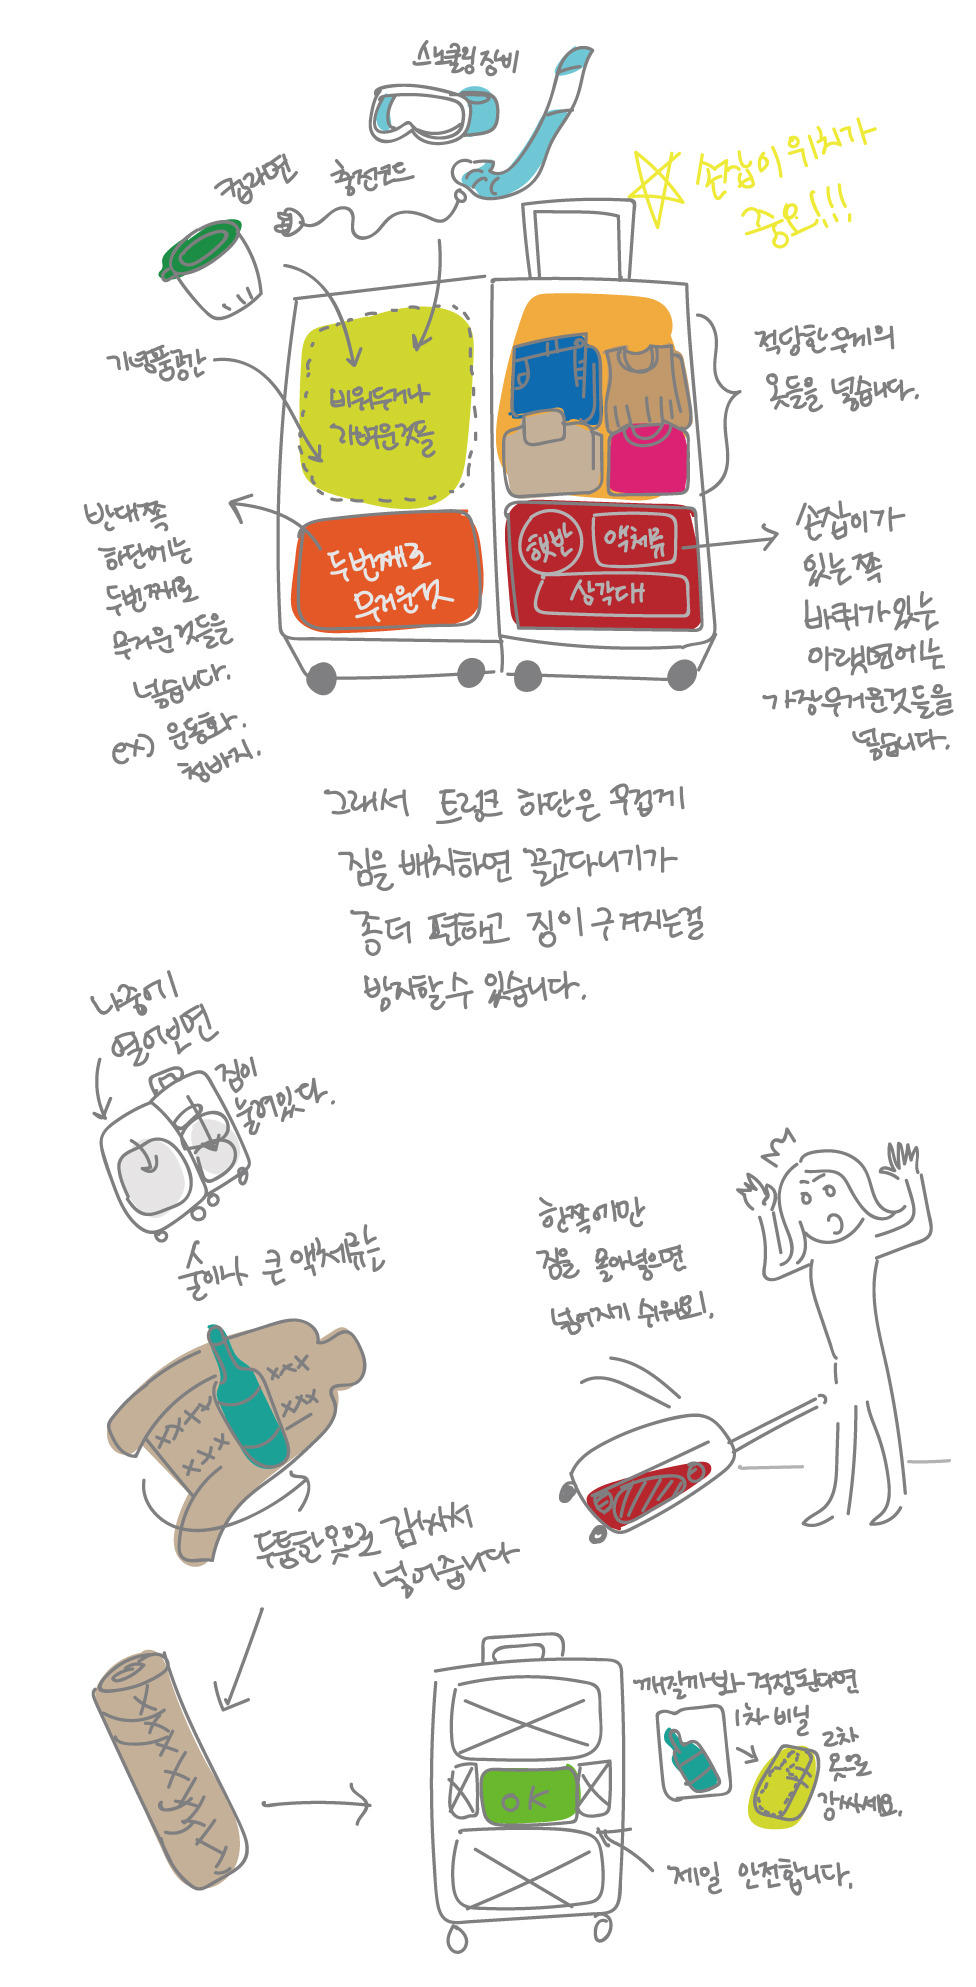 스노쿨링장비
컵라면
충전코드
손잡이 위치가
중요!!!
기념품공간
비워두거나
가벼운것들
적당한 무게의
옷들을 넣습니다.
반대쪽
하단에는
두번째로
무거운것들을
넣습니다.
ex) 운동화.
청바지.
두번째로
무거운것
햇반
액체류
삼각대
손잡이가
있는쪽
바퀴가 있는
아랫면에는
가장무거운것들을
넣습니다.
그래서 트렁크 하단은 무겁게
짐을 배치하면 끌고다니기가
좀더 편하고 짐이 구겨지는걸
방지할수 있습니다.
나중에
열어보면
짐이
눌려있다.
한쪽에만
짐을 몰아넣으면
넘어지기 쉬워요!.
술이나 큰 액체류는
두툼한 옷으로 감싸서
넣어줍니다
깨질까봐 걱정된다면
1차 비닐
2차
옷으로
감싸세요.
OK
제일 안전합니다.